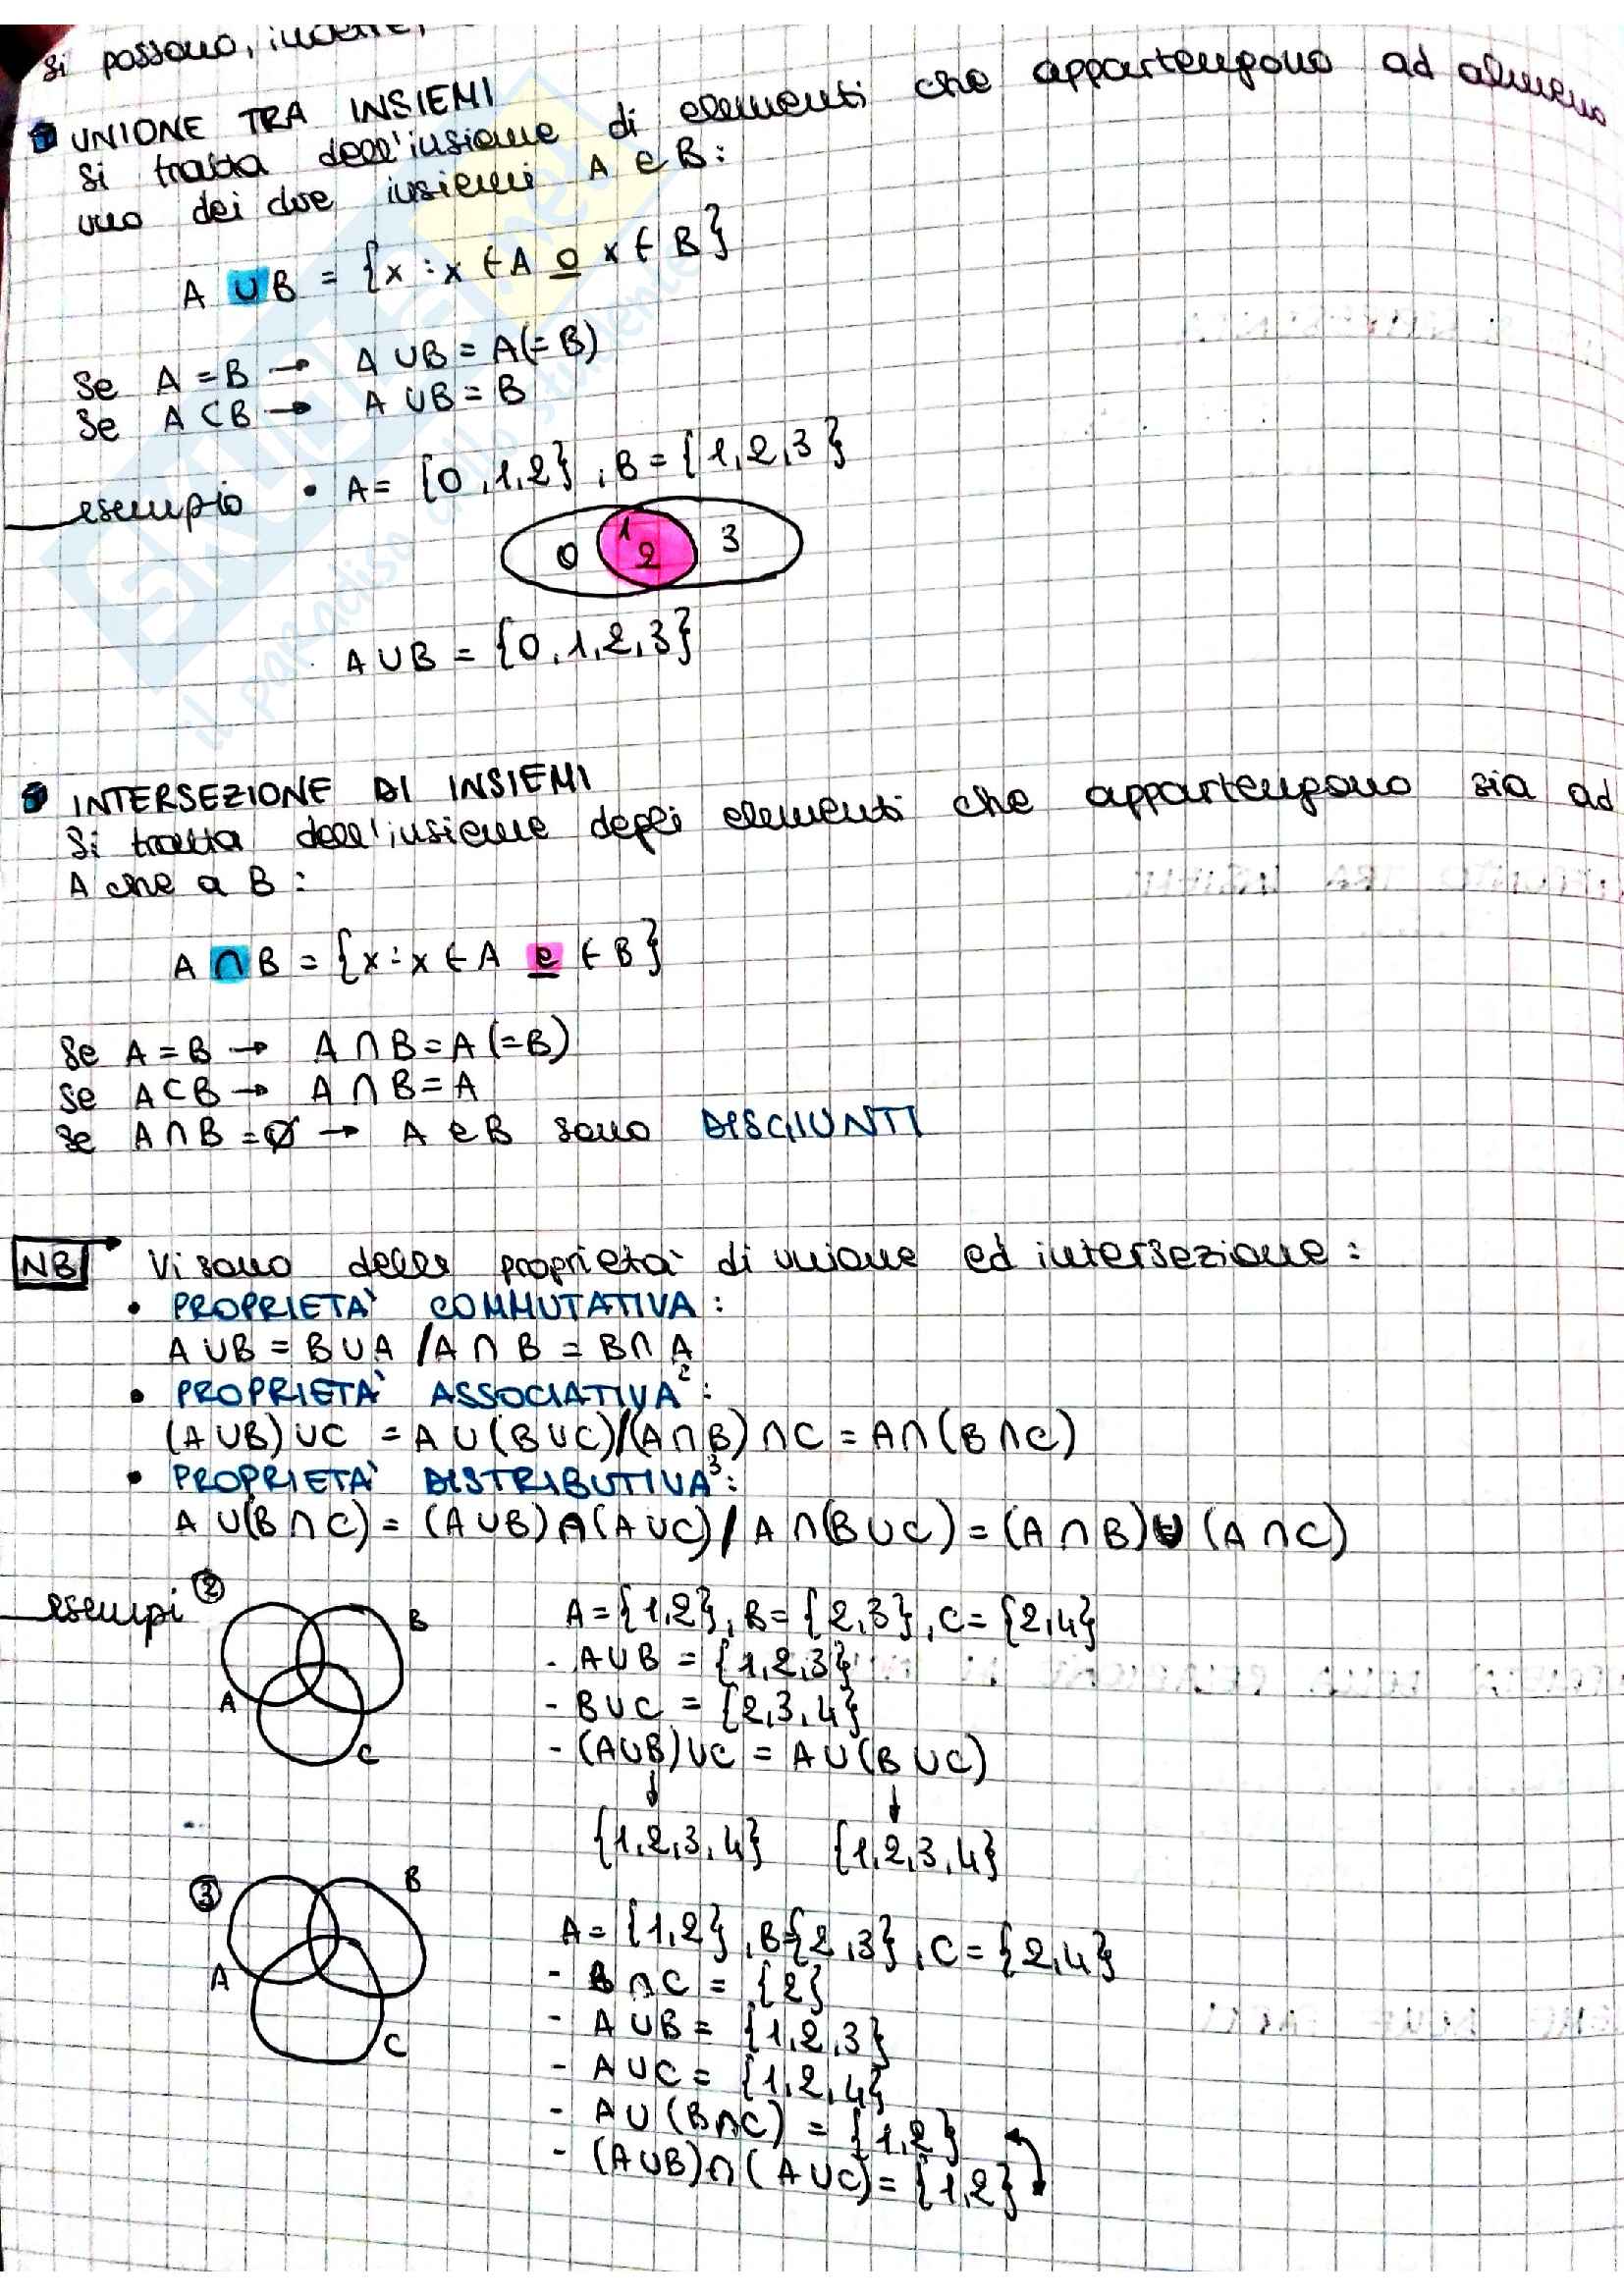 Si possono, inoltre,
UNIONE TRA INSIEMI
Si tratta dell'insieme di elementi che appartengono ad almeno
uno dei due insiemi A e B:
A ∪ B = {x : x ∈ A o x ∈ B}
Se A = B → A ∪ B = A (= B)
Se A ⊂ B → A ∪ B = B
esempio • A = {0, 1, 2}, B = {1, 2, 3}
0 1 2 3
A ∪ B = {0, 1, 2, 3}
INTERSEZIONE DI INSIEMI
Si tratta dell'insieme degli elementi che appartengono sia ad
A che a B:
A ∩ B = {x : x ∈ A e ∈ B}
Se A = B → A ∩ B = A (= B)
Se A ⊂ B → A ∩ B = A
Se A ∩ B = ∅ → A e B sono DISGIUNTI
NB Vi sono delle proprietà di unione ed intersezione:
• PROPRIETA' COMMUTATIVA:
A ∪ B = B ∪ A / A ∩ B = B ∩ A
• PROPRIETA' ASSOCIATIVA²:
(A ∪ B) ∪ C = A ∪ (B ∪ C) / (A ∩ B) ∩ C = A ∩ (B ∩ C)
• PROPRIETA' DISTRIBUTIVA³:
A ∪ (B ∩ C) = (A ∪ B) ∩ (A ∪ C) / A ∩ (B ∪ C) = (A ∩ B) ∪ (A ∩ C)
esempi ②
A B C
A = {1,2}, B = {2,3}, C = {2,4}
- A ∪ B = {1,2,3}
- B ∪ C = {2,3,4}
- (A ∪ B) ∪ C = A ∪ (B ∪ C)
{1,2,3,4} {1,2,3,4}
③
A B C
A = {1,2}, B={2,3}, C = {2,4}
- B ∩ C = {2}
- A ∪ B = {1,2,3}
- A ∪ C = {1,2,4}
- A ∪ (B ∩ C) = {1,2}
- (A ∪ B) ∩ (A ∪ C) = {1,2}
SKUOLA.net
il paradiso dello studente